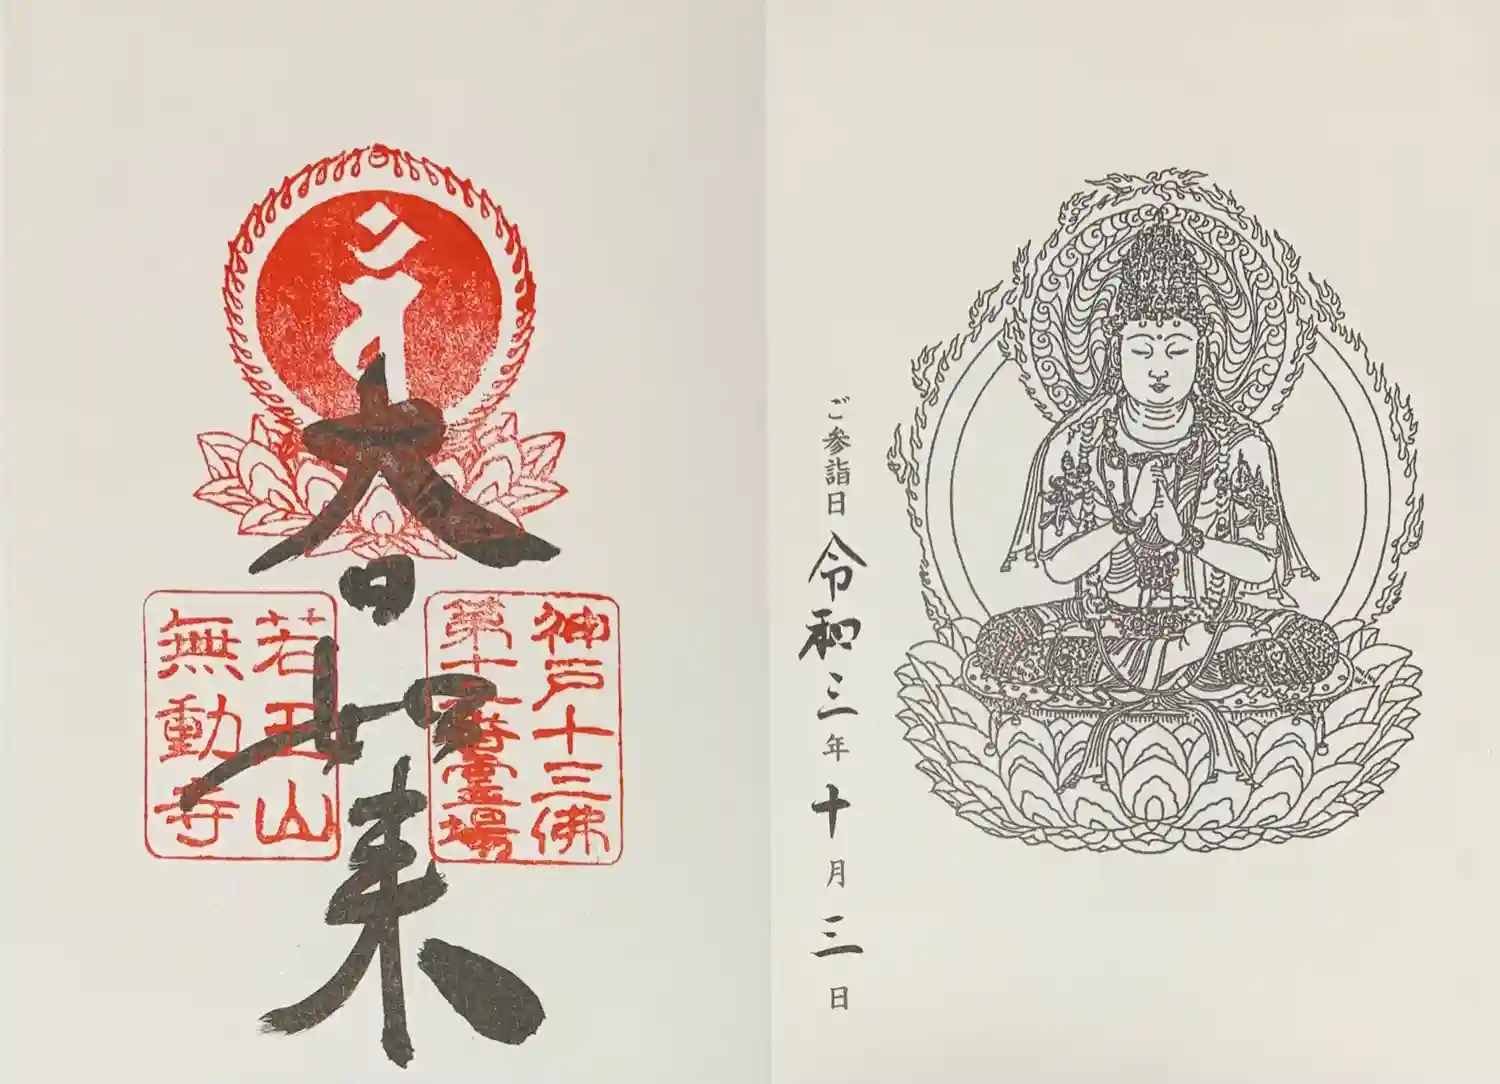 大日如来
神戸十三佛
第十二番霊場
若王山
無動寺
ご参詣日 令和三年十月三日